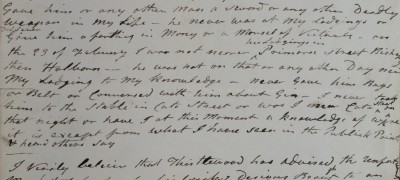 Gave him or any other Man a Sword or any other Deadly
Weapon in my Life — he never was at My Lodgings or
Gave him a farthing in Money or a Morsel of Victuals — on
the 23 of February I was not nearer Primrose Street
then Holborn — he was not on that or any other Day over
My Lodging to My Knowledge — Never Gave him
or Belt or Conversed with him about I never
him to the Stable in Cato Street or was I near Cato
that night or have I at this Moment a Knowledge of where
it is except from what I have seen in the Publick Print
& hear others say
I Verily believe that Thistlewood has advised, the
designs